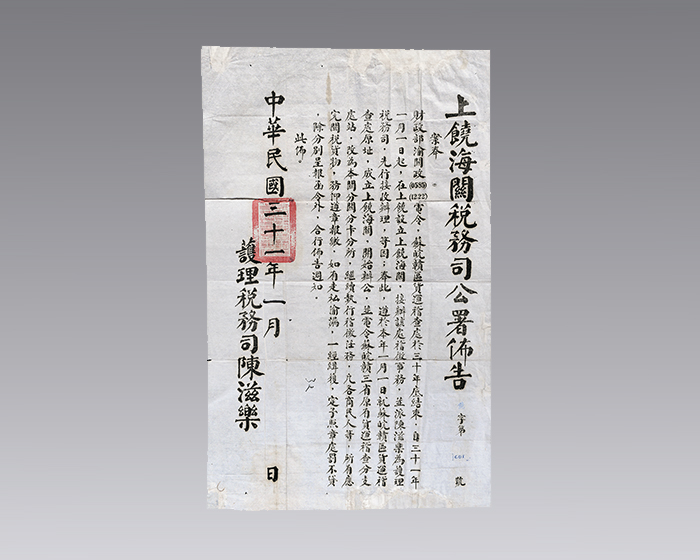 上饒海關稅務司公署佈告
字第 號
案奉
財政部渝關政(0585)(1222)電令，蘇皖贛區貨運稽查處於三十年底結束，自三十一年
一月一日起，在上饒設立上饒海關，接辦該處稽徵事務，並派陳滋樂為護理
稅務司，先行接收辦理，等因；奉此，遵於本年一月一日就蘇皖贛區貨運稽
查處原址，成立上饒海關，開始辦公，並電令蘇皖贛三省原有貨運稽查分支
處站，改為本關分關分卡分所，繼續執行稽徵任務，凡各商民人等，所有應
完關稅貨物，務仰遵章報繳，如有走私偷漏，一經緝獲，定予照章處罰不貸
，除分別呈報函令外，合行佈告週知．
此佈
中華民國三十一年一月 日
護理稅務司陳滋樂